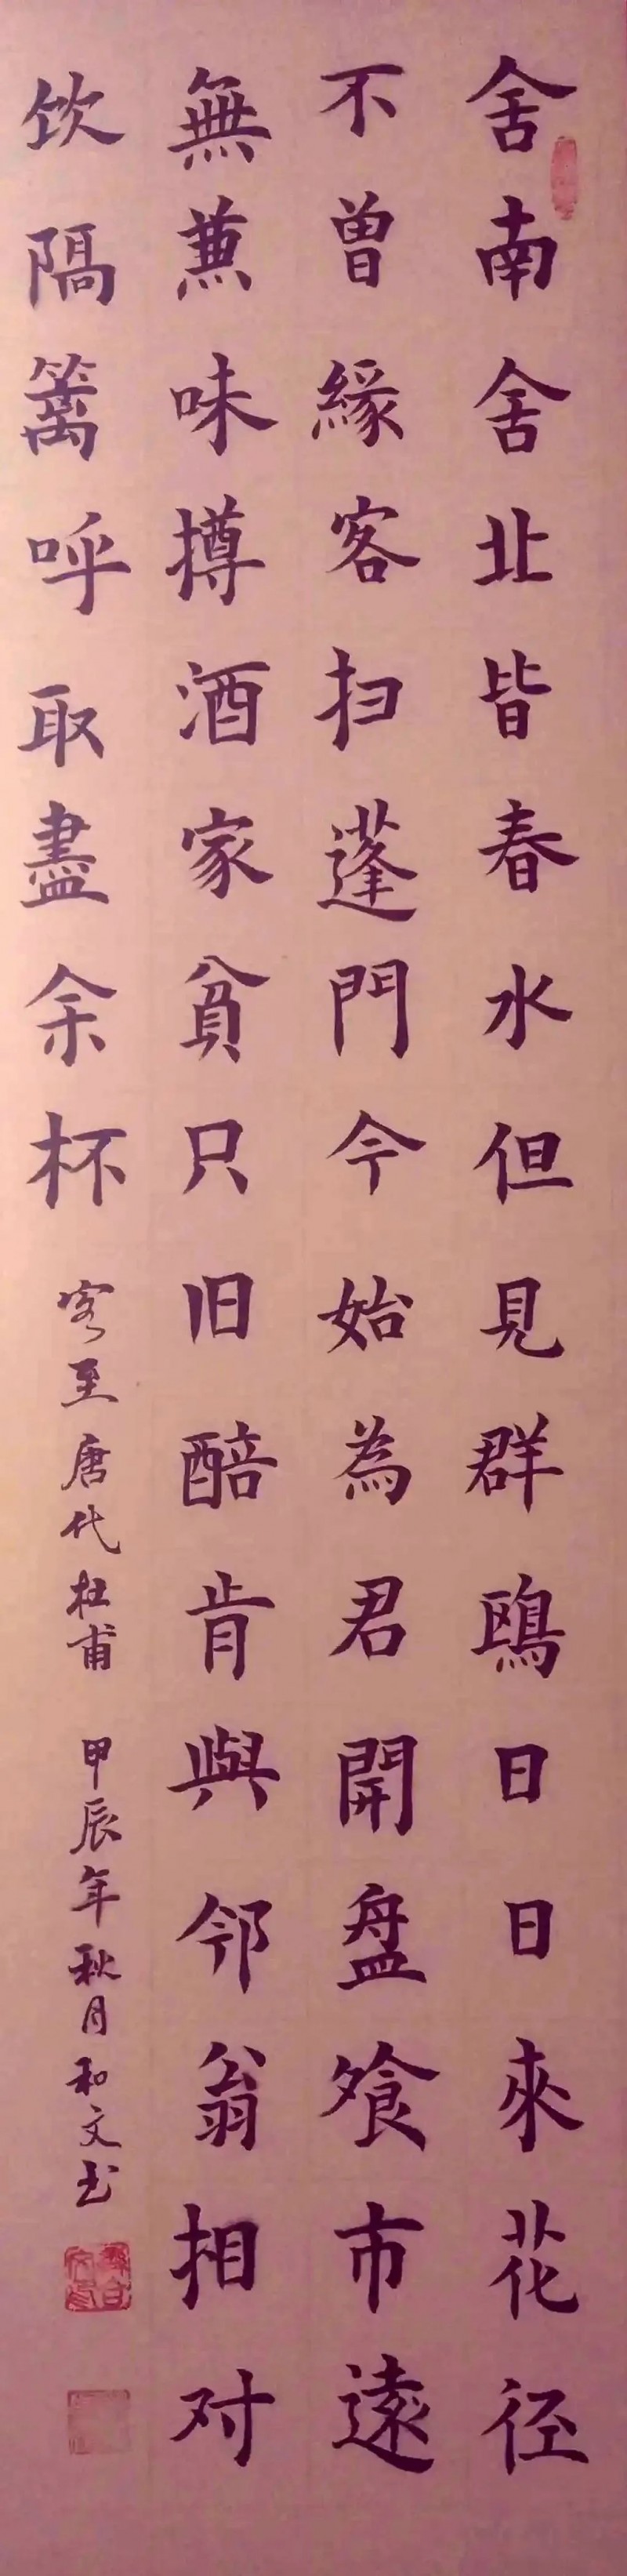 舍南舍北皆春水但見群鷗日日來花径
不曾緣客扫蓬門今始為君開盤飧市遠
無兼味樽酒家貧只旧醅肯與邻翁相对
饮隔篱呼取盡余杯
客至 唐代 杜甫 甲辰年秋月和文书